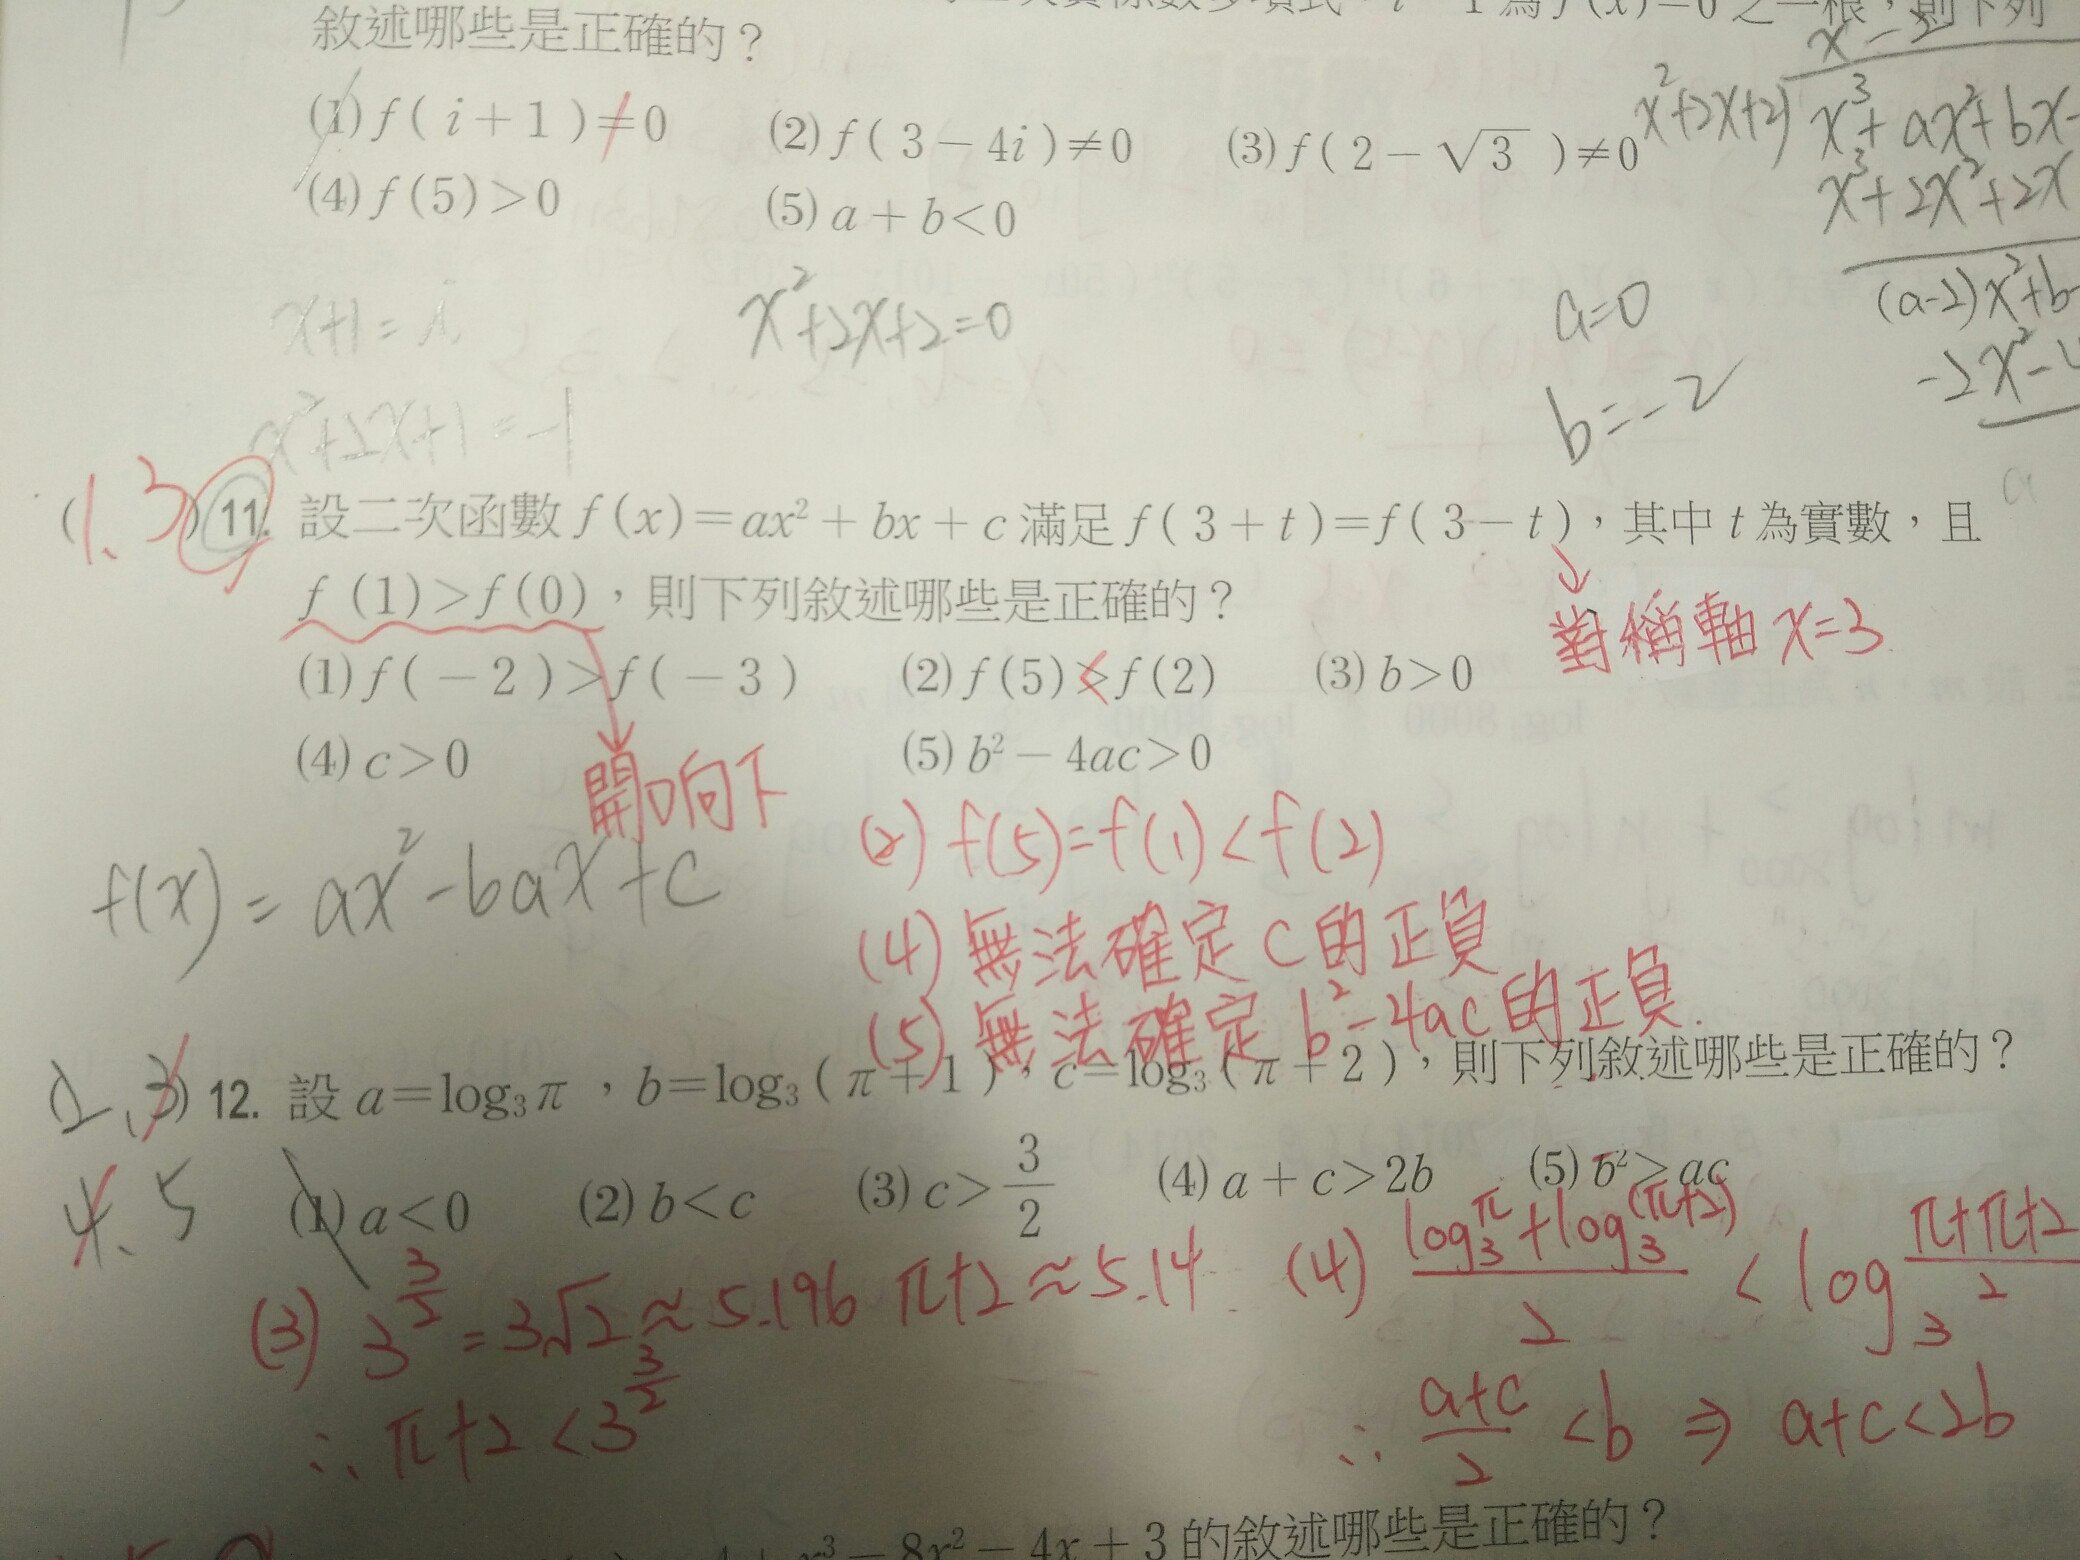 敘述哪些是正確的？
(1) f ( i + 1 ) ≠ 0 (2) f ( 3 − 4i ) ≠ 0 (3) f ( 2 − √3 ) ≠ 0
(4) f (5) > 0 (5) a + b < 0
x − 2
x²+2x+2 ) x³+ax²+bx
x³+2x²+2x
(a-2)x²+b
-2x²-4
x+1 = i
x²+2x+2=0
x²+2x+1 = -1
a=0
b=-2
(1.3) 11. 設二次函數 f (x) = ax² + bx + c 滿足 f ( 3 + t ) = f ( 3 − t )，其中 t 為實數，且
f (1) > f (0)，則下列敘述哪些是正確的？
對稱軸 x=3
(1) f ( − 2 ) > f ( − 3 ) (2) f (5) > f (2) (3) b > 0
(4) c > 0 (5) b² − 4ac > 0
開口向下
f(x) = ax² - 6ax + c
(2) f(5) = f(1) < f(2)
(4) 無法確定 c 的正負
(5) 無法確定 b²-4ac 的正負.
2.3) 12. 設 a = log₃ π，b = log₃ ( π + 1 )，c = log₃ ( π + 2 )，則下列敘述哪些是正確的？
4.5
(1) a < 0 (2) b < c (3) c > 3/2 (4) a + c > 2b (5) b² > ac
(3) 3^(3/2) = 3√2 ≈ 5.196 π+2 ≈ 5.14
∴ π+2 < 3^(3/2)
(4) (log₃π + log₃(π+2))/2 < log₃ (π+π+2)/2
∴ (a+c)/2 < b ⇒ a+c < 2b
x³ − 8x² − 4x + 3 的敘述哪些是正確的？